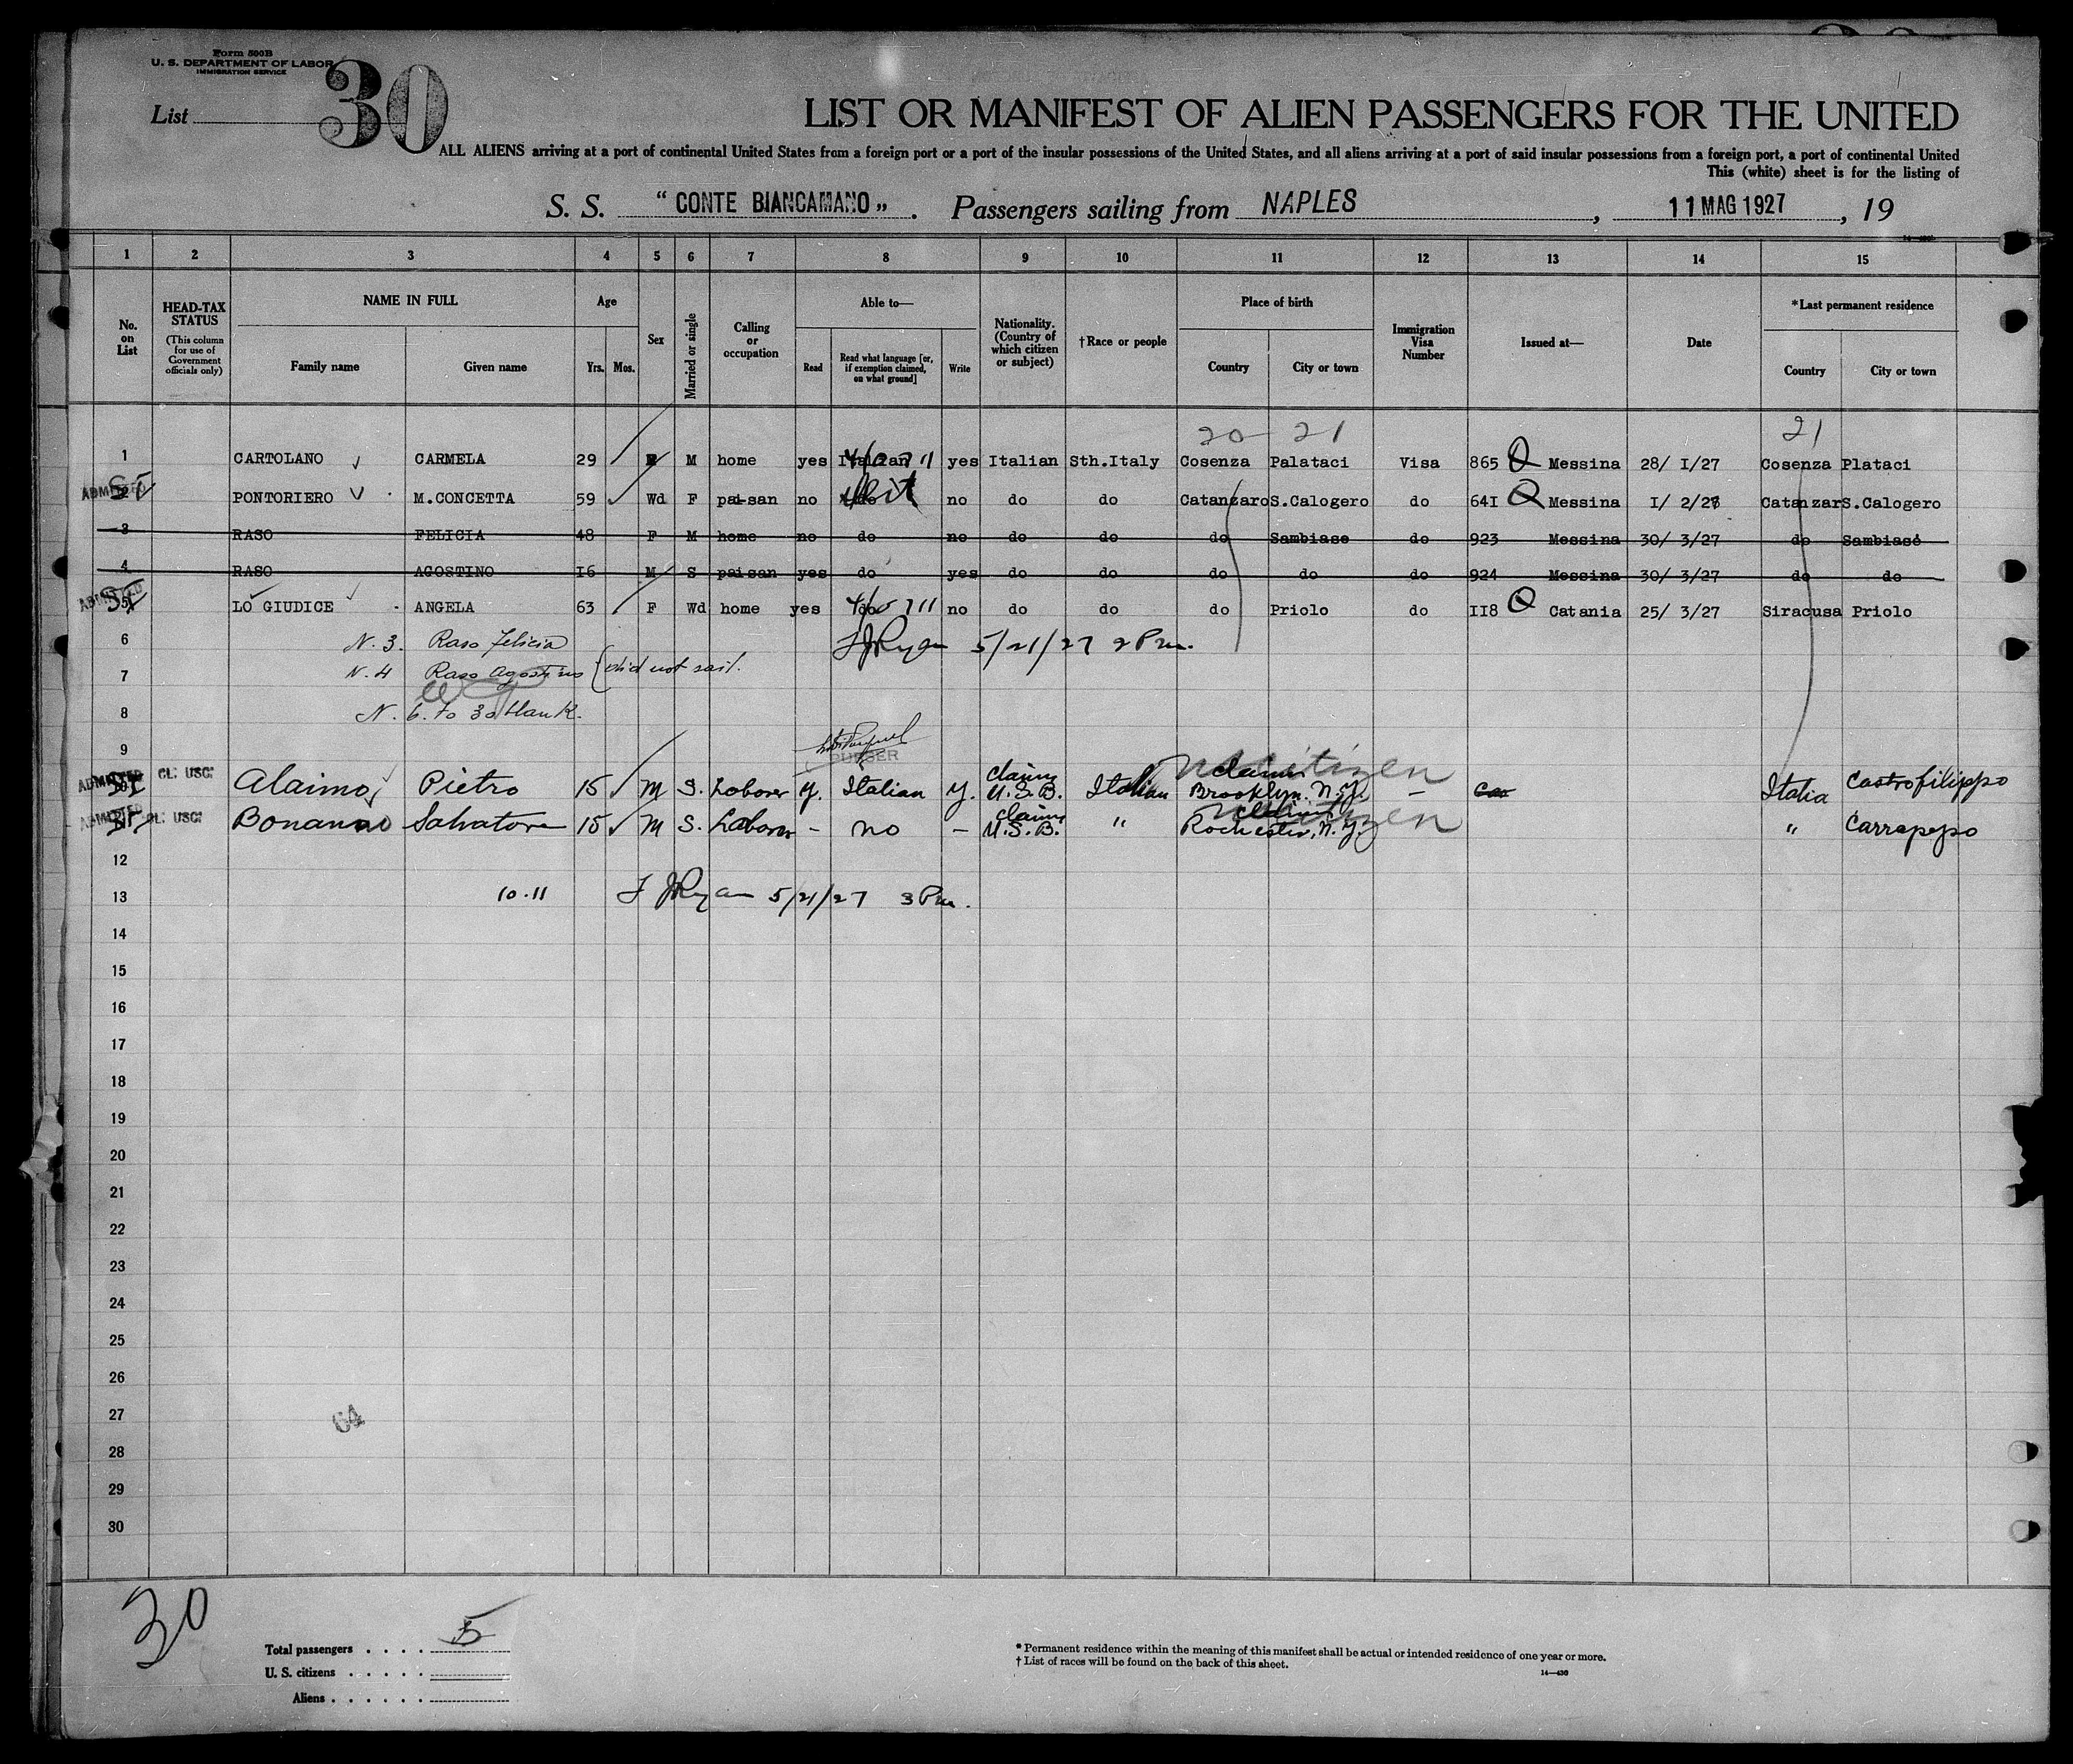 Form 500B
U. S. DEPARTMENT OF LABOR
IMMIGRATION SERVICE
List 30
LIST OR MANIFEST OF ALIEN PASSENGERS FOR THE UNITED
ALL ALIENS arriving at a port of continental United States from a foreign port or a port of the insular possessions of the United States, and all aliens arriving at a port of said insular possessions from a foreign port, a port of continental United
This (white) sheet is for the listing of
S. S. " CONTE BIANCAMANO " . Passengers sailing from NAPLES , 11 MAG 1927 , 19
1 2 3 4 5 6 7 8 9 10 11 12 13 14 15
No. on List
HEAD-TAX STATUS
(This column for use of Government officials only)
NAME IN FULL
Family name Given name
Age
Yrs. Mos.
Sex
Married or single
Calling or occupation
Able to—
Read
Read what language [or, if exemption claimed, on what ground]
Write
Nationality. (Country of which citizen or subject)
†Race or people
Place of birth
Country City or town
Immigration Visa Number
Issued at—
Date
*Last permanent residence
Country City or town
20 21 21
1 CARTOLANO CARMELA 29 M home yes Italian yes Italian Sth.Italy Cosenza Palataci Visa 865 Messina 28/ I/27 Cosenza Plataci
ADMITTED PONTORIERO M.CONCETTA 59 Wd F pai-san no do no do do Catanzaro S.Calogero do 64I Messina I/ 2/27 Catanzar S.Calogero
3 RASO FELICIA 48 F M home no do no do do do Sambiase do 923 Messina 30/ 3/27 do Sambiase
4 RASO AGOSTINO I6 M S paisan yes do yes do do do do do 924 Messina 30/ 3/27 do do
ADMITTED LO GIUDICE ANGELA 63 F Wd home yes do no do do do Priolo do II8 Catania 25/ 3/27 Siracusa Priolo
6 N. 3. Raso Felicia F J Ryan 5/21/27 2 Pm.
7 N. 4 Raso Agostino { did not sail.
8 N. 6. to 30 blank.
9
PURSER
ADMITTED CL: USC: Alaimo Pietro 15 M S. Laborer y. Italian y. claims U.S.B. Italian claims Brooklyn, N.Y. — Italia Castrofilippo
ADMITTED CL: USC: Bonanno Salvatore 15 M S. Laborer - no - claims U.S.B. " claims Rochester, N.Y. " Carrapepo
12
13 10.11 F J Ryan 5/21/27 3 Pm.
14
15
16
17
18
19
20
21
22
23
24
25
26
27
64
28
29
30
30
Total passengers . . . . 5
U. S. citizens . . . . .
Aliens . . . . . .
* Permanent residence within the meaning of this manifest shall be actual or intended residence of one year or more.
† List of races will be found on the back of this sheet.
14—430